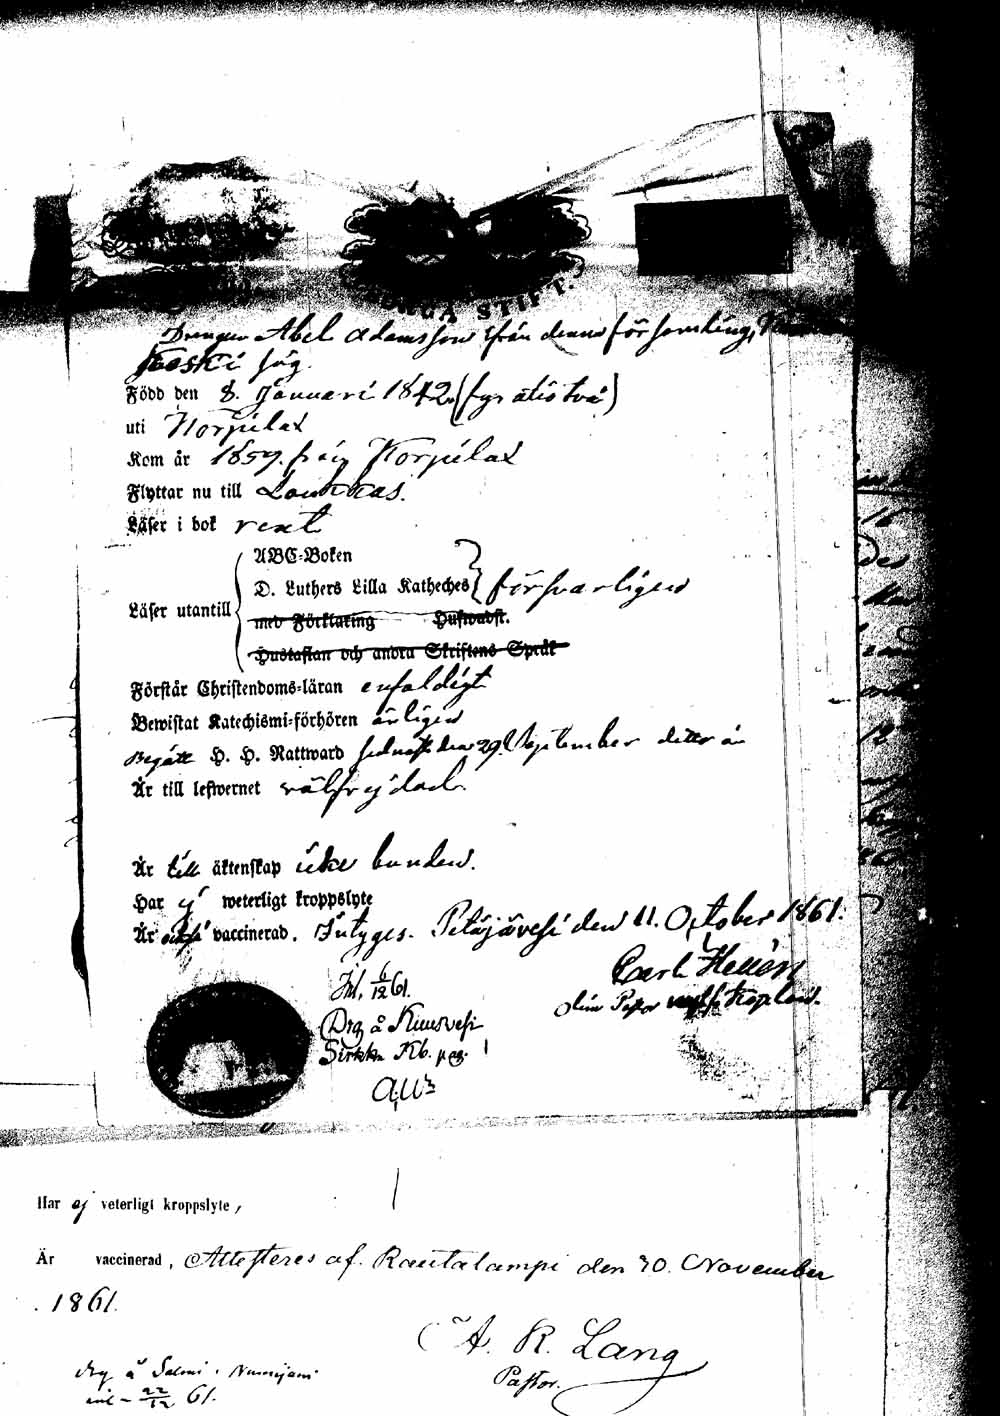 BORGÅ STIFT.
Drengen Abel Adamsson ifrån denna församling,
Koski
Född den 8. Januari 1842. (fyratiotvå)
uti Korpilax
Kom år 1859. från Korpilax
Flyttar nu till Laukkas.
Läser i bok rent
ABC=Boken
D. Luthers Lilla Katheches försvarligen
Läser utantill
med Förklaring Hustavl.
Hustaflan och andra Skriftens Språk
Förstår Christendoms=läran enfaldigt
Bewistat Katechismi=förhören årligen
Begått H. H. Nattward sednast den 29. September detta år
Är till lefwernet välfrejdad.
Är till äktenskap icke bunden.
Har ej weterligt kroppslyte
Är också vaccinerad. Intygas. Petäjävesi den 11. October 1861.
Carl Hellén
Inl. 6/12 61.
Drg å Kuusvesi
Sirkka Kb. pag. 1
Har ej veterligt kroppslyte,
Är vaccinerad, Attesteres af. Rautalampi den 30. November
1861.
A. R. Lang
Pastor.
drg å Salmi
inl - 22/12 61.